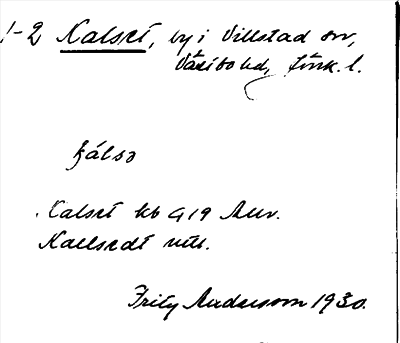 1-2 Kalset, by i Villstad sn,
Västbo hd, Jönk. l.
kálsə
Kalset kb G 19 Allv.
Kallsedt uttl.
Fritz Andersson 1930.